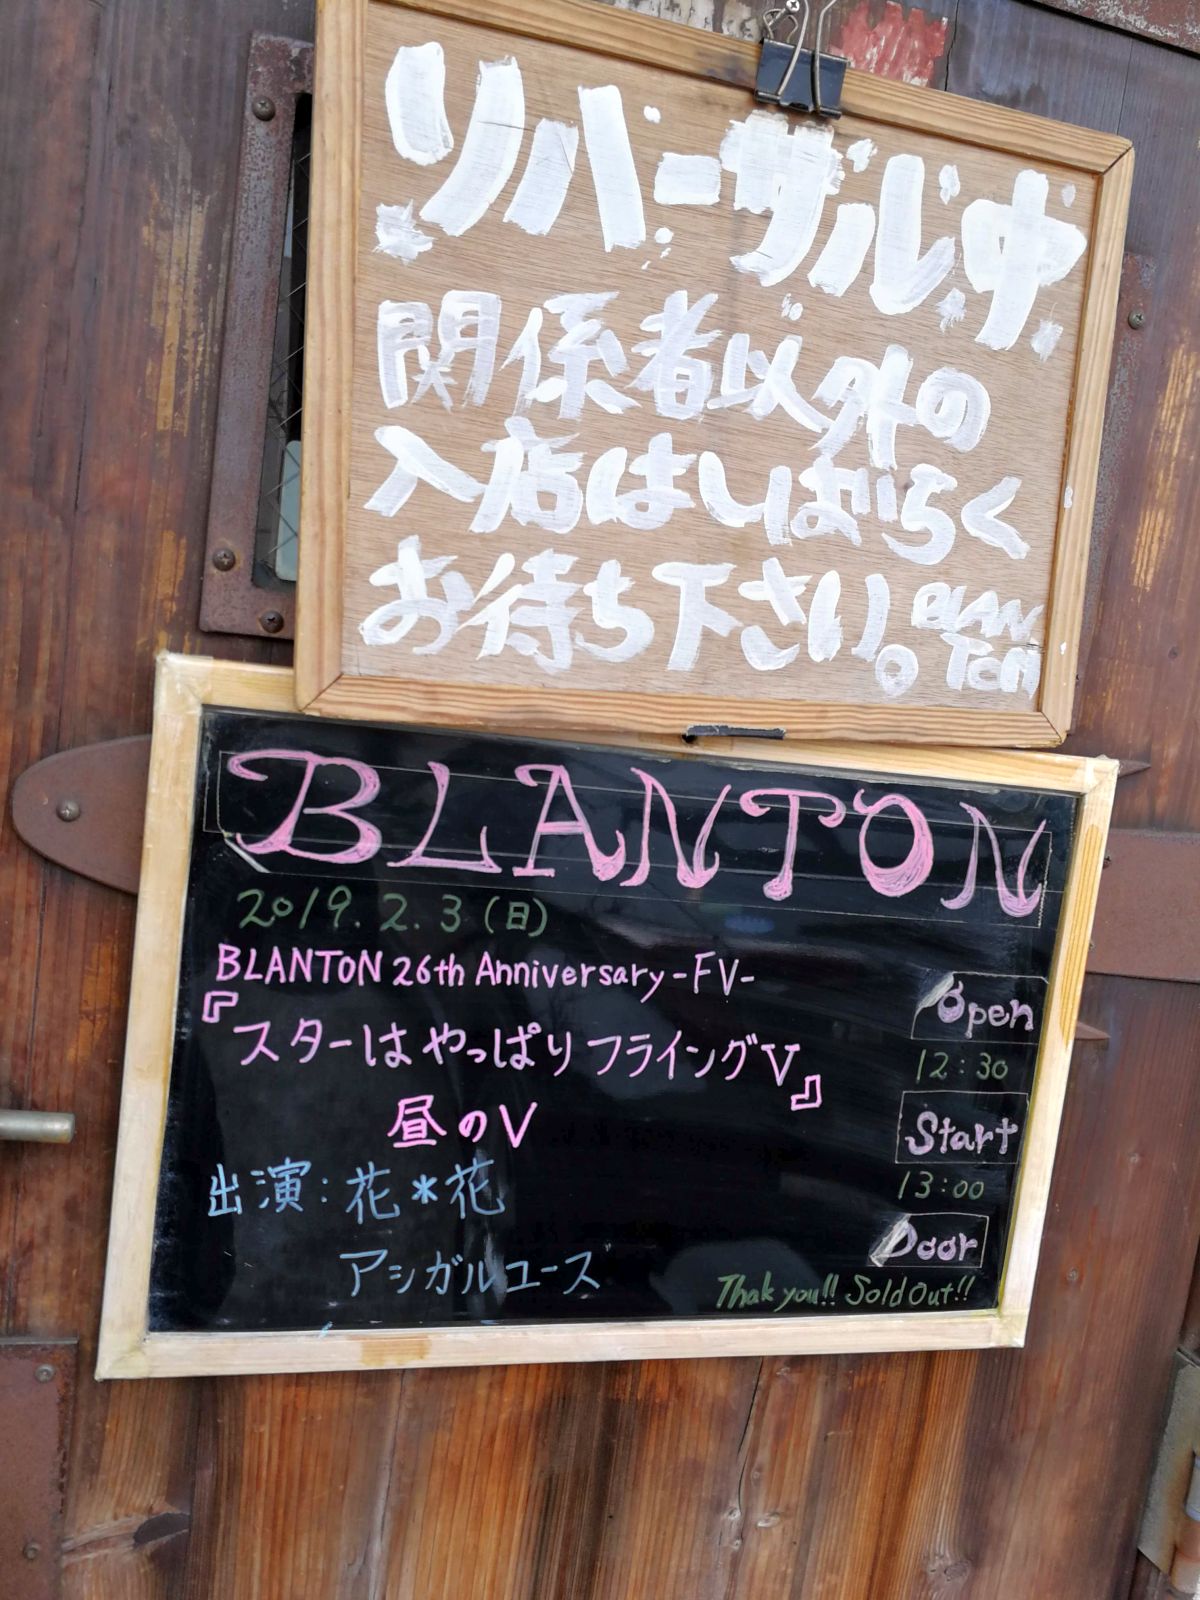 リハーサル中
関係者以外の
入店はしばらく
お待ち下さい。
BLAN
TON
BLANTON
2019.2.3(日)
BLANTON 26th Anniversary -FV-
『スターはやっぱりフライングV』
昼のV
出演:花*花
アシガルユース
Open
12:30
Start
13:00
Door
Thak you!! Sold Out!!